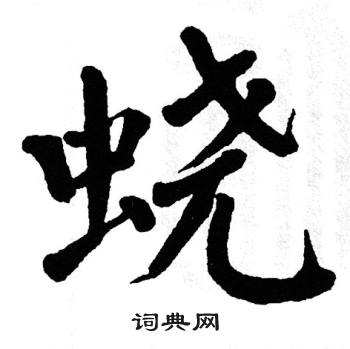 蛲
词典网